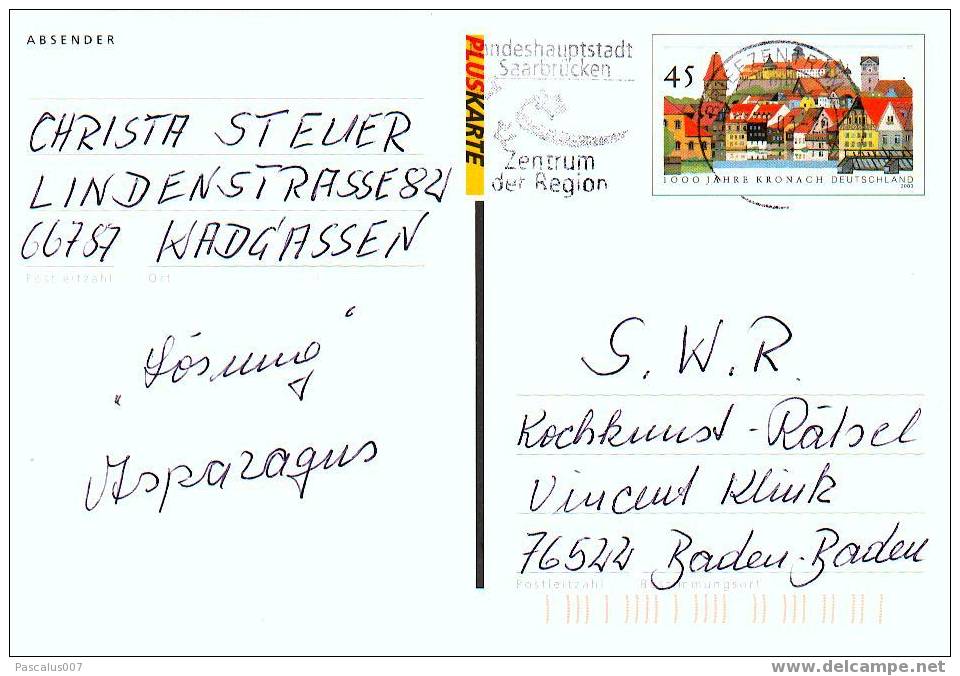 ABSENDER
CHRISTA STEUER
LINDENSTRASSE 82
66787 WADGASSEN
Postleitzahl Ort
„Lösung“
Asparagus
PLUSKARTE
Landeshauptstadt
Saarbrücken
Zentrum
der Region
45
BRIEFZENTRUM
1000 JAHRE KRONACH DEUTSCHLAND
2003
S. W. R.
Kochkunst-Rätsel
Vincent Klink
76522 Baden-Baden
Postleitzahl Bestimmungsort
Pascalus007
www.delcampe.net